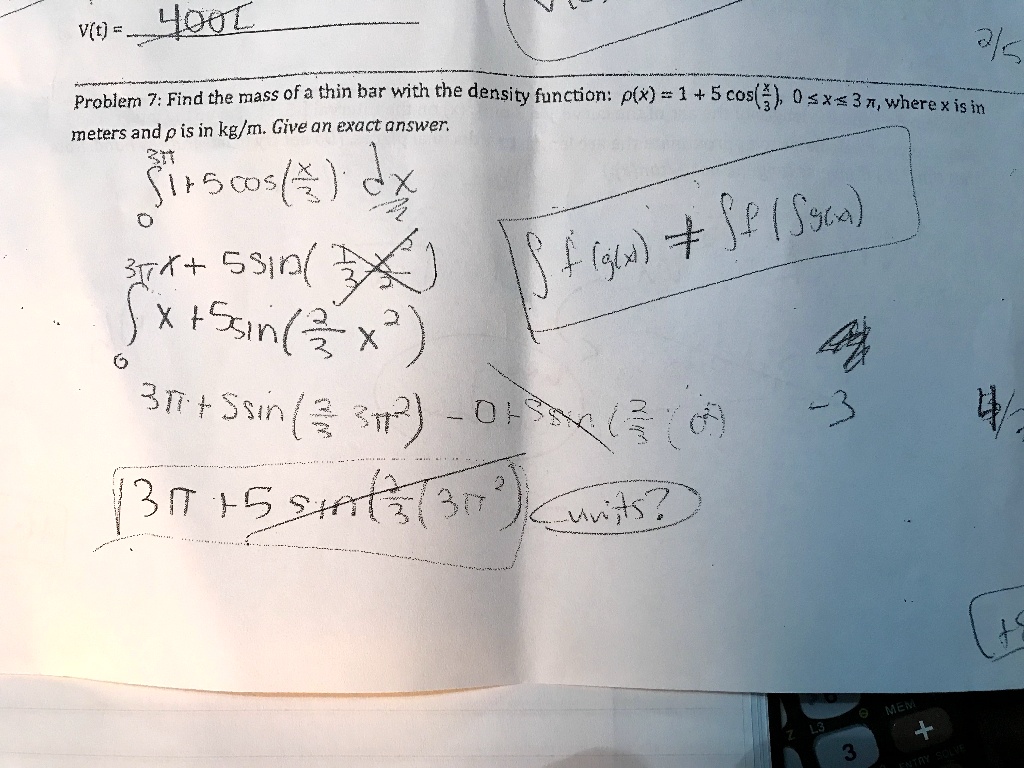 V(t) = 400t
2/5
Problem 7: Find the mass of a thin bar with the density function: ρ(x) = 1 + 5 cos(x/3), 0 ≤ x ≤ 3 π, where x is in
meters and ρ is in kg/m. Give an exact answer.
∫₀^3π 1+5 cos(x/3) dx
∫ f(g(x)) ≠ ∫f(∫g(x))
x + 5sin(
∫₀^3π x + 5sin(2/3 x²)
3π + 5sin(2/3 3π²) - 0 + 5sin(2/3 (0²)
-3
3π + 5 sin(2/3(3π²)
units?
L3
MEM
3
+